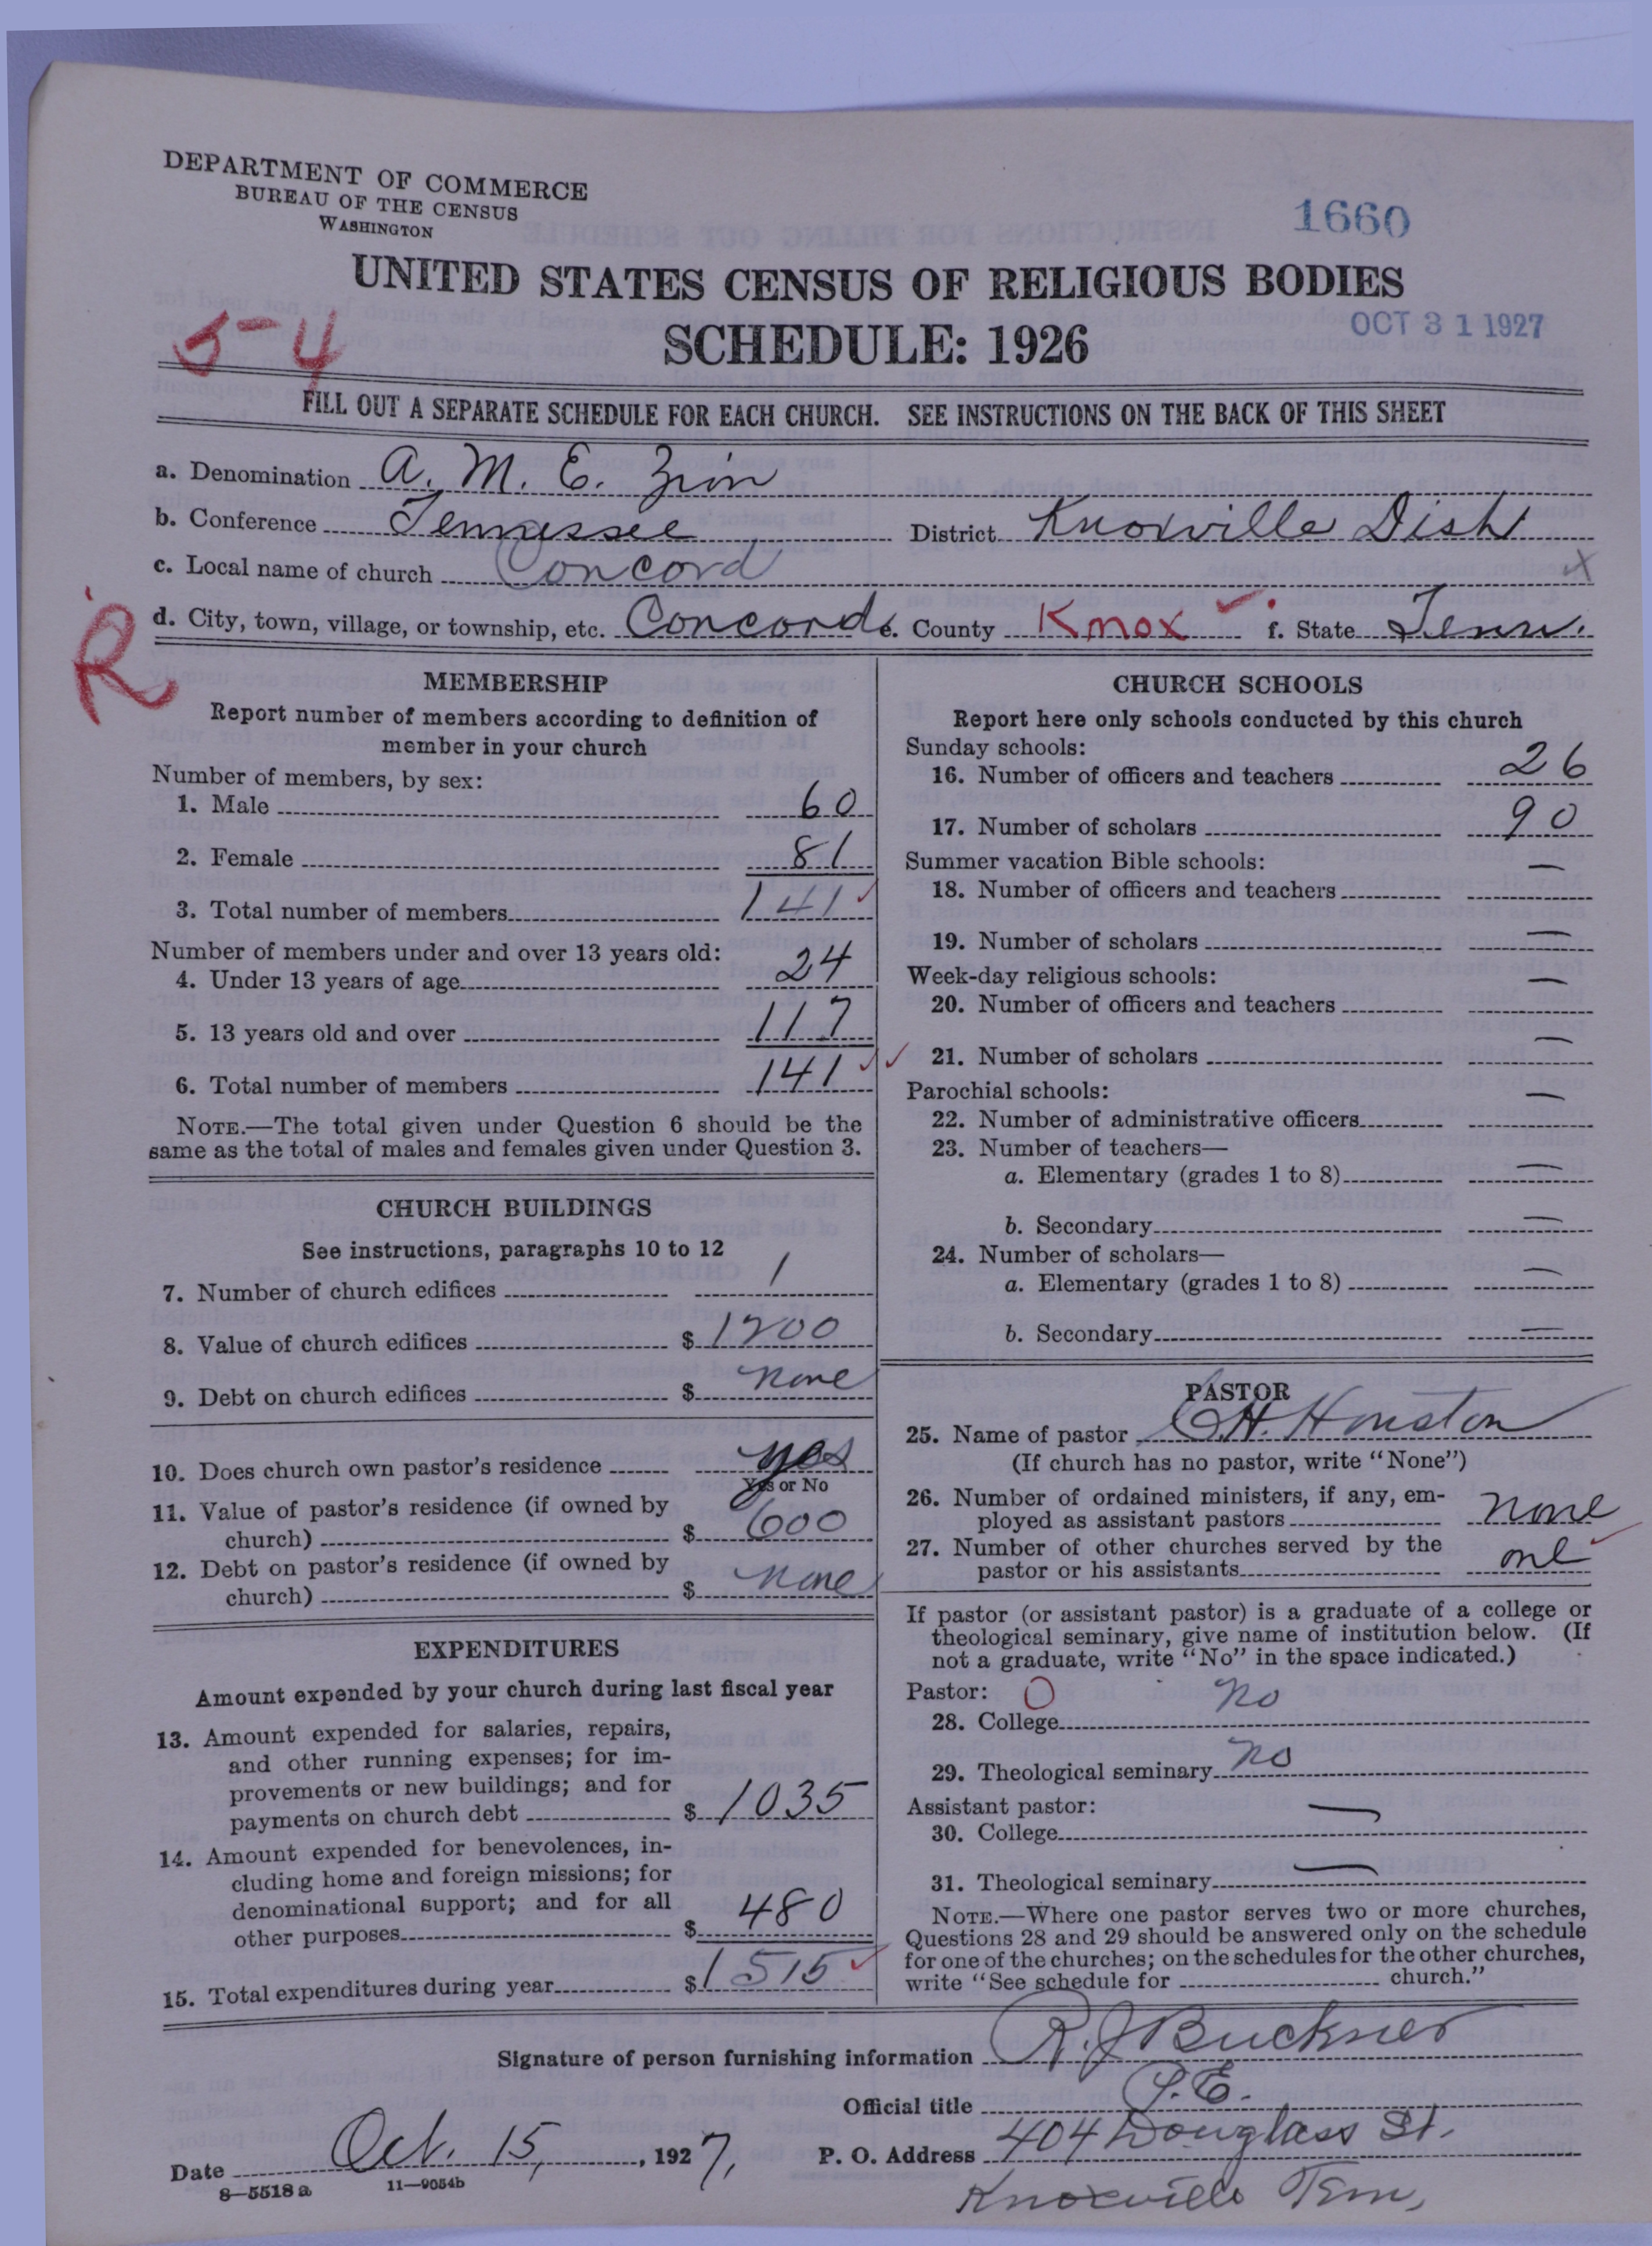 DEPARTMENT OF COMMERCE
BUREAU OF THE CENSUS
WASHINGTON
1660
UNITED STATES CENSUS OF RELIGIOUS BODIES
SCHEDULE: 1926
OCT 31 1927
5-4
FILL OUT A SEPARATE SCHEDULE FOR EACH CHURCH. SEE INSTRUCTIONS ON THE BACK OF THIS SHEET
a. Denomination A. M. E. Zion
b. Conference Tennessee District Knoxville Dist
c. Local name of church Concord X
d. City, town, village, or township, etc. Concord e. County Knox ✓. f. State Tenn.
R
MEMBERSHIP
Report number of members according to definition of
member in your church
Number of members, by sex:
1. Male 60
2. Female 81
3. Total number of members 141 ✓
Number of members under and over 13 years old:
4. Under 13 years of age 24
5. 13 years old and over 117
6. Total number of members 141 ✓ ✓
NOTE.—The total given under Question 6 should be the
same as the total of males and females given under Question 3.
CHURCH BUILDINGS
See instructions, paragraphs 10 to 12
7. Number of church edifices 1
8. Value of church edifices $ 1200
9. Debt on church edifices $ none
10. Does church own pastor's residence yes
Yes or No
11. Value of pastor's residence (if owned by
church) $ 600
12. Debt on pastor's residence (if owned by
church) $ none
EXPENDITURES
Amount expended by your church during last fiscal year
13. Amount expended for salaries, repairs,
and other running expenses; for im-
provements or new buildings; and for
payments on church debt $ 1035
14. Amount expended for benevolences, in-
cluding home and foreign missions; for
denominational support; and for all
other purposes $ 480
15. Total expenditures during year $ 1515 ✓
CHURCH SCHOOLS
Report here only schools conducted by this church
Sunday schools:
16. Number of officers and teachers 26
17. Number of scholars 90
Summer vacation Bible schools:
18. Number of officers and teachers —
19. Number of scholars —
Week-day religious schools:
20. Number of officers and teachers —
21. Number of scholars —
Parochial schools:
22. Number of administrative officers —
23. Number of teachers—
a. Elementary (grades 1 to 8) —
b. Secondary —
24. Number of scholars—
a. Elementary (grades 1 to 8) —
b. Secondary —
PASTOR
25. Name of pastor C. H. Houston
(If church has no pastor, write "None")
26. Number of ordained ministers, if any, em-
ployed as assistant pastors none
27. Number of other churches served by the
pastor or his assistants one ✓
If pastor (or assistant pastor) is a graduate of a college or
theological seminary, give name of institution below. (If
not a graduate, write "No" in the space indicated.)
Pastor: O
28. College no
29. Theological seminary no
Assistant pastor:
30. College —
31. Theological seminary —
NOTE.—Where one pastor serves two or more churches,
Questions 28 and 29 should be answered only on the schedule
for one of the churches; on the schedules for the other churches,
write "See schedule for church."
Signature of person furnishing information R. J. Buckner
Official title P. E.
Date Oct. 15, 1927, P. O. Address 404 Douglass St.
8—5518 a 11—9054b
Knoxville Tenn,